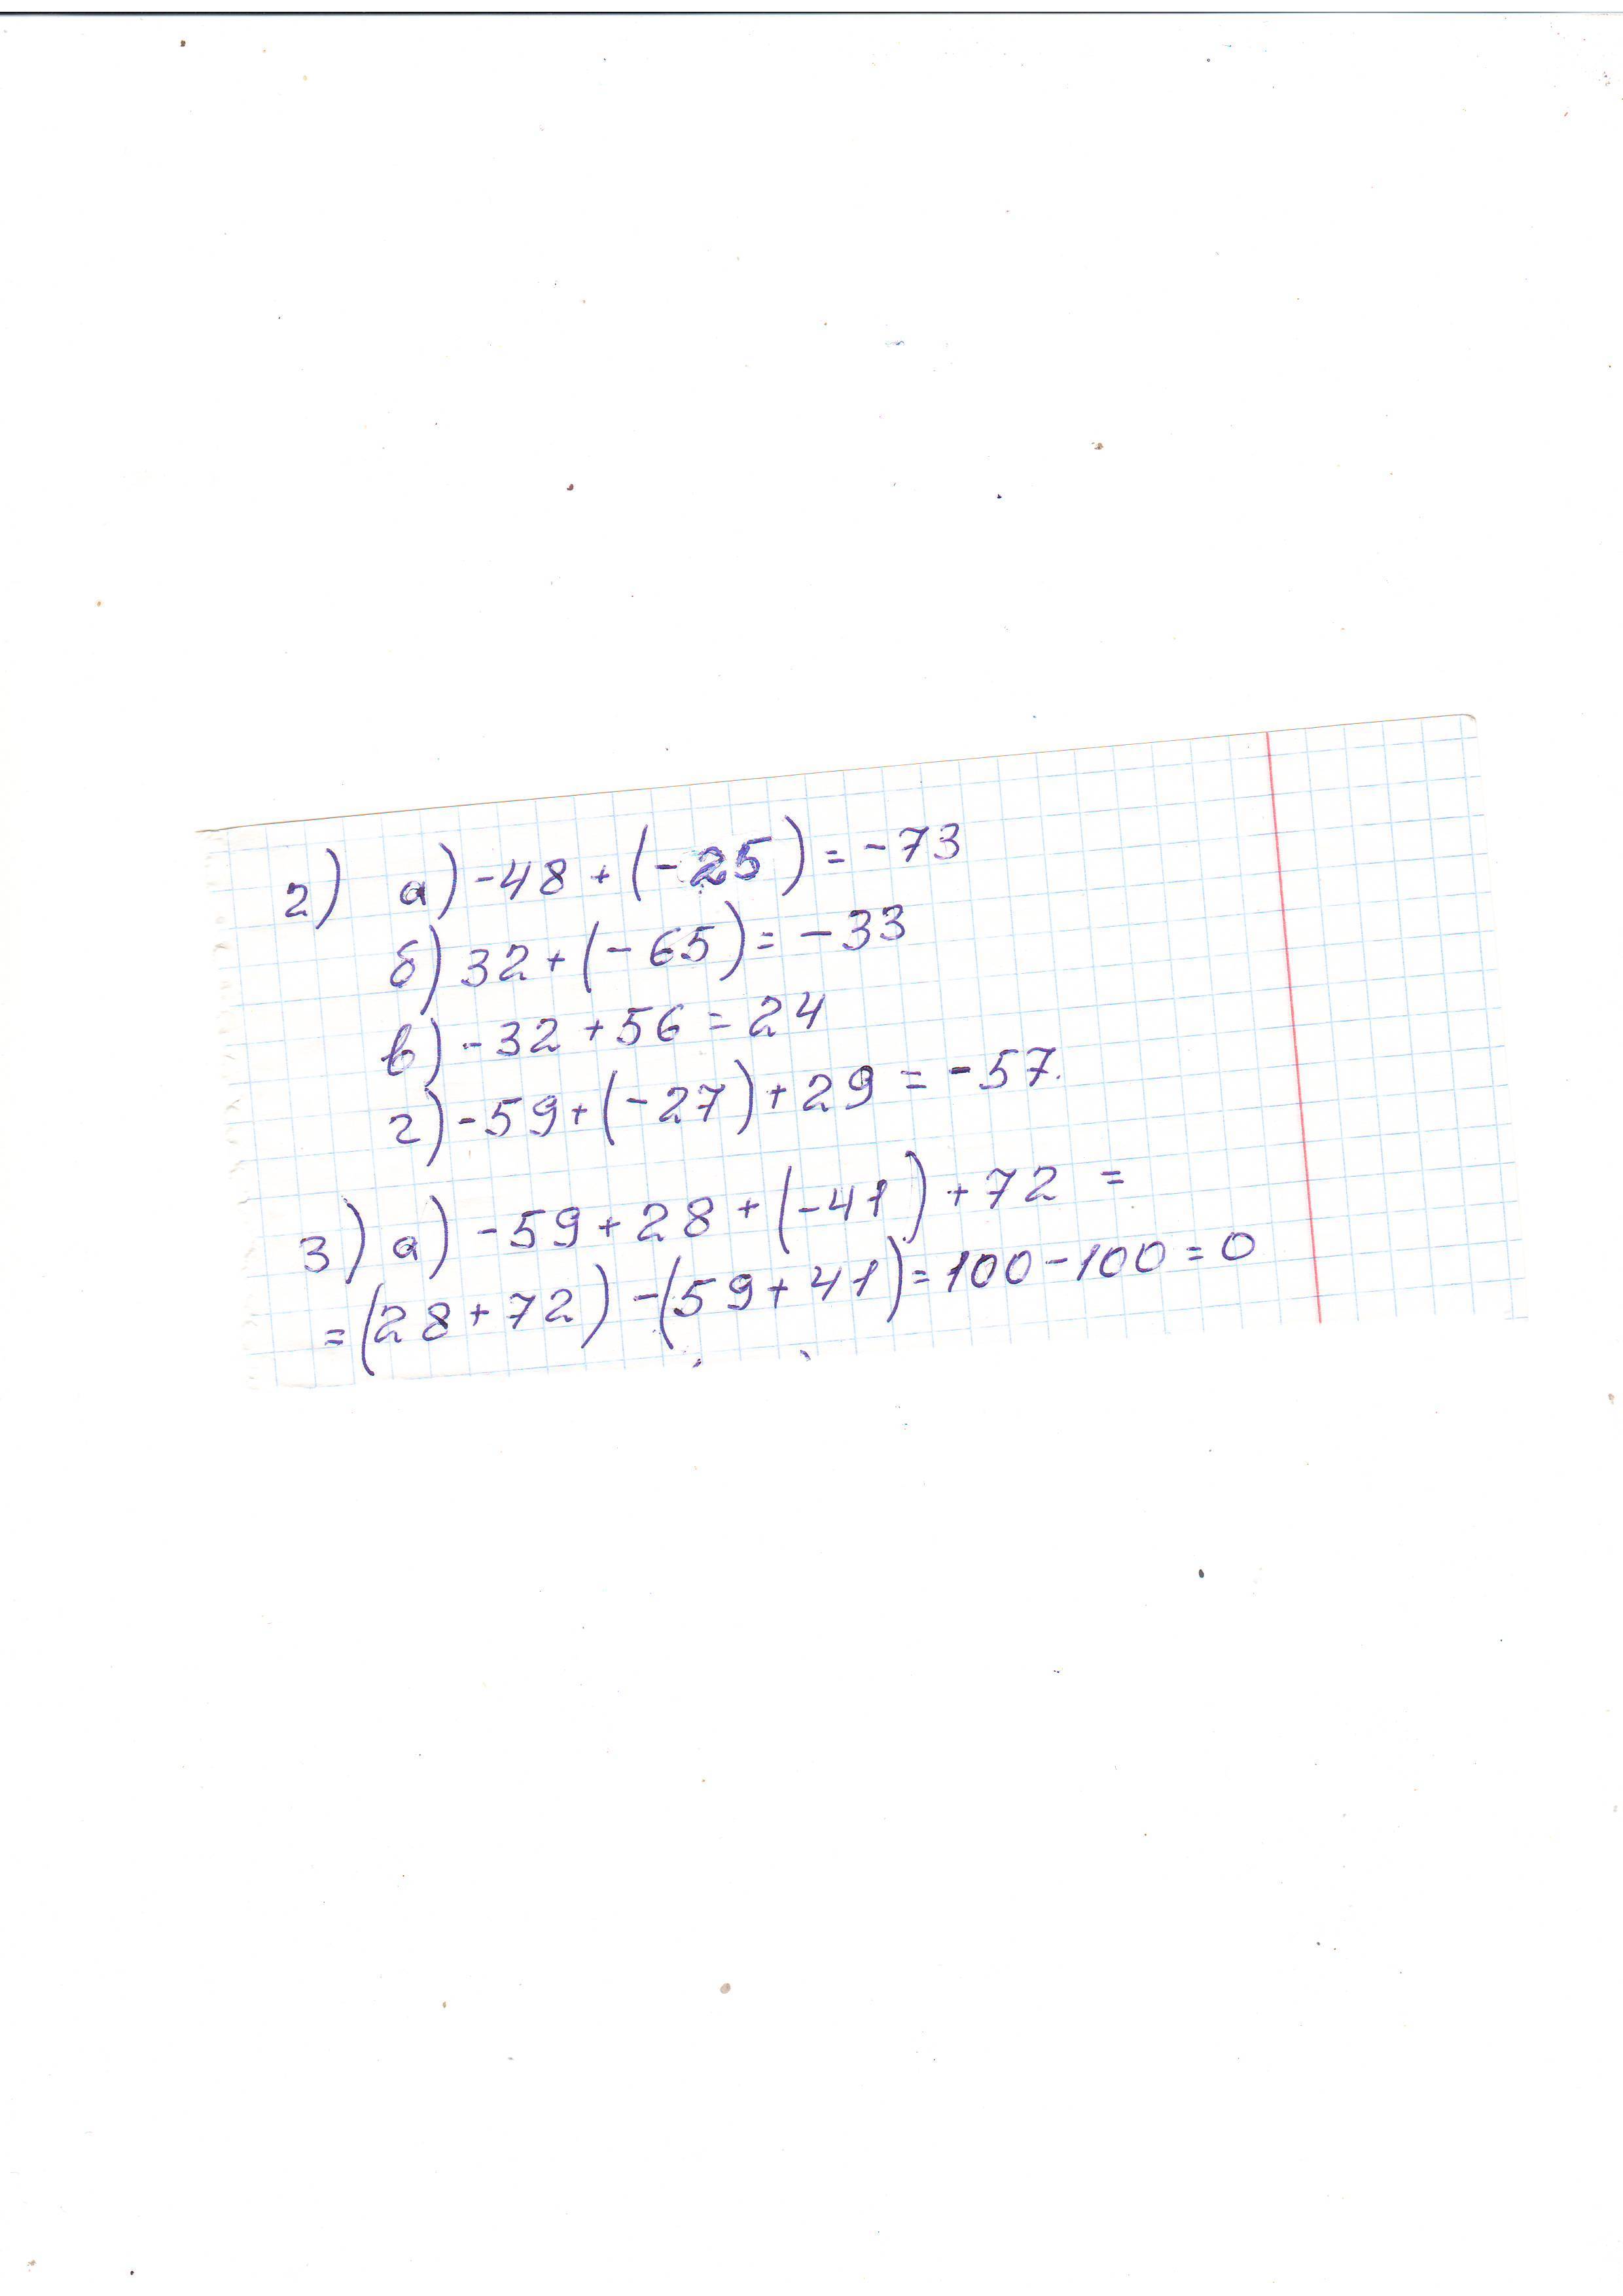 2) а) -48 + (-25) = -73
б) 32 + (-65) = -33
в) -32 + 56 = 24
г) -59 + (-27) + 29 = -57.
3) а) -59 + 28 + (-41) + 72 =
= (28 + 72) - (59 + 41) = 100 - 100 = 0